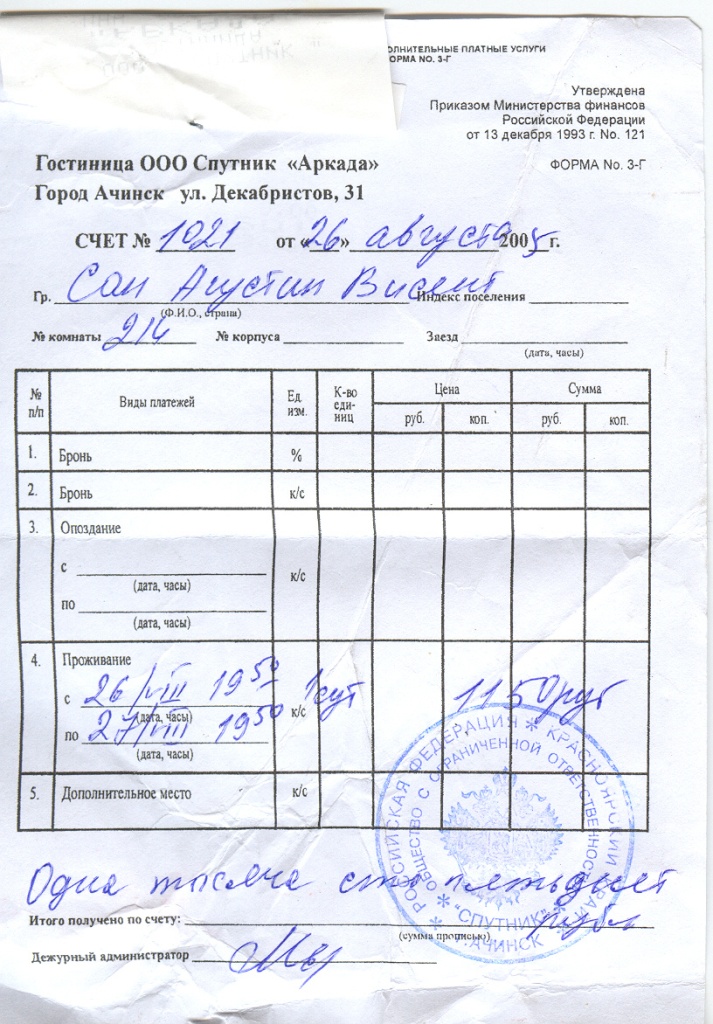 ОЛНИТЕЛЬНЫЕ ПЛАТНЫЕ УСЛУГИ
ОРМА NO. 3-Г
Утверждена
Приказом Министерства финансов
Российской Федерации
от 13 декабря 1993 г. No. 121
Гостиница ООО Спутник «Аркада»
ФОРМА No. 3-Г
Город Ачинск ул. Декабристов, 31
СЧЕТ № 1021 от «26» августа 2005 г.
Гр. Сан Агустин Висент Индекс поселения
(Ф.И.О., страна)
№ комнаты 214 № корпуса Заезд
(дата, часы)
№ п/п Виды платежей Ед. изм. К-во еди- ниц Цена Сумма
руб. коп. руб. коп.
1. Бронь %
2. Бронь к/с
3. Опоздание
с к/с
(дата, часы)
по
(дата, часы)
4. Проживание
с 26/VIII 19 50 к/с 1 сут 1150 руб
(дата, часы)
по 27/VIII 19 50
(дата, часы)
5. Дополнительное место к/с
РОССИЙСКАЯ ФЕДЕРАЦИЯ * КРАСНОЯРСКИЙ КРАЙ *
ОБЩЕСТВО С ОГРАНИЧЕННОЙ ОТВЕТСТВЕННОСТЬЮ
"СПУТНИК"
АЧИНСК
Одна тысяча сто пятьдесят
Итого получено по счету: рубл
(сумма прописью)
Дежурный администратор